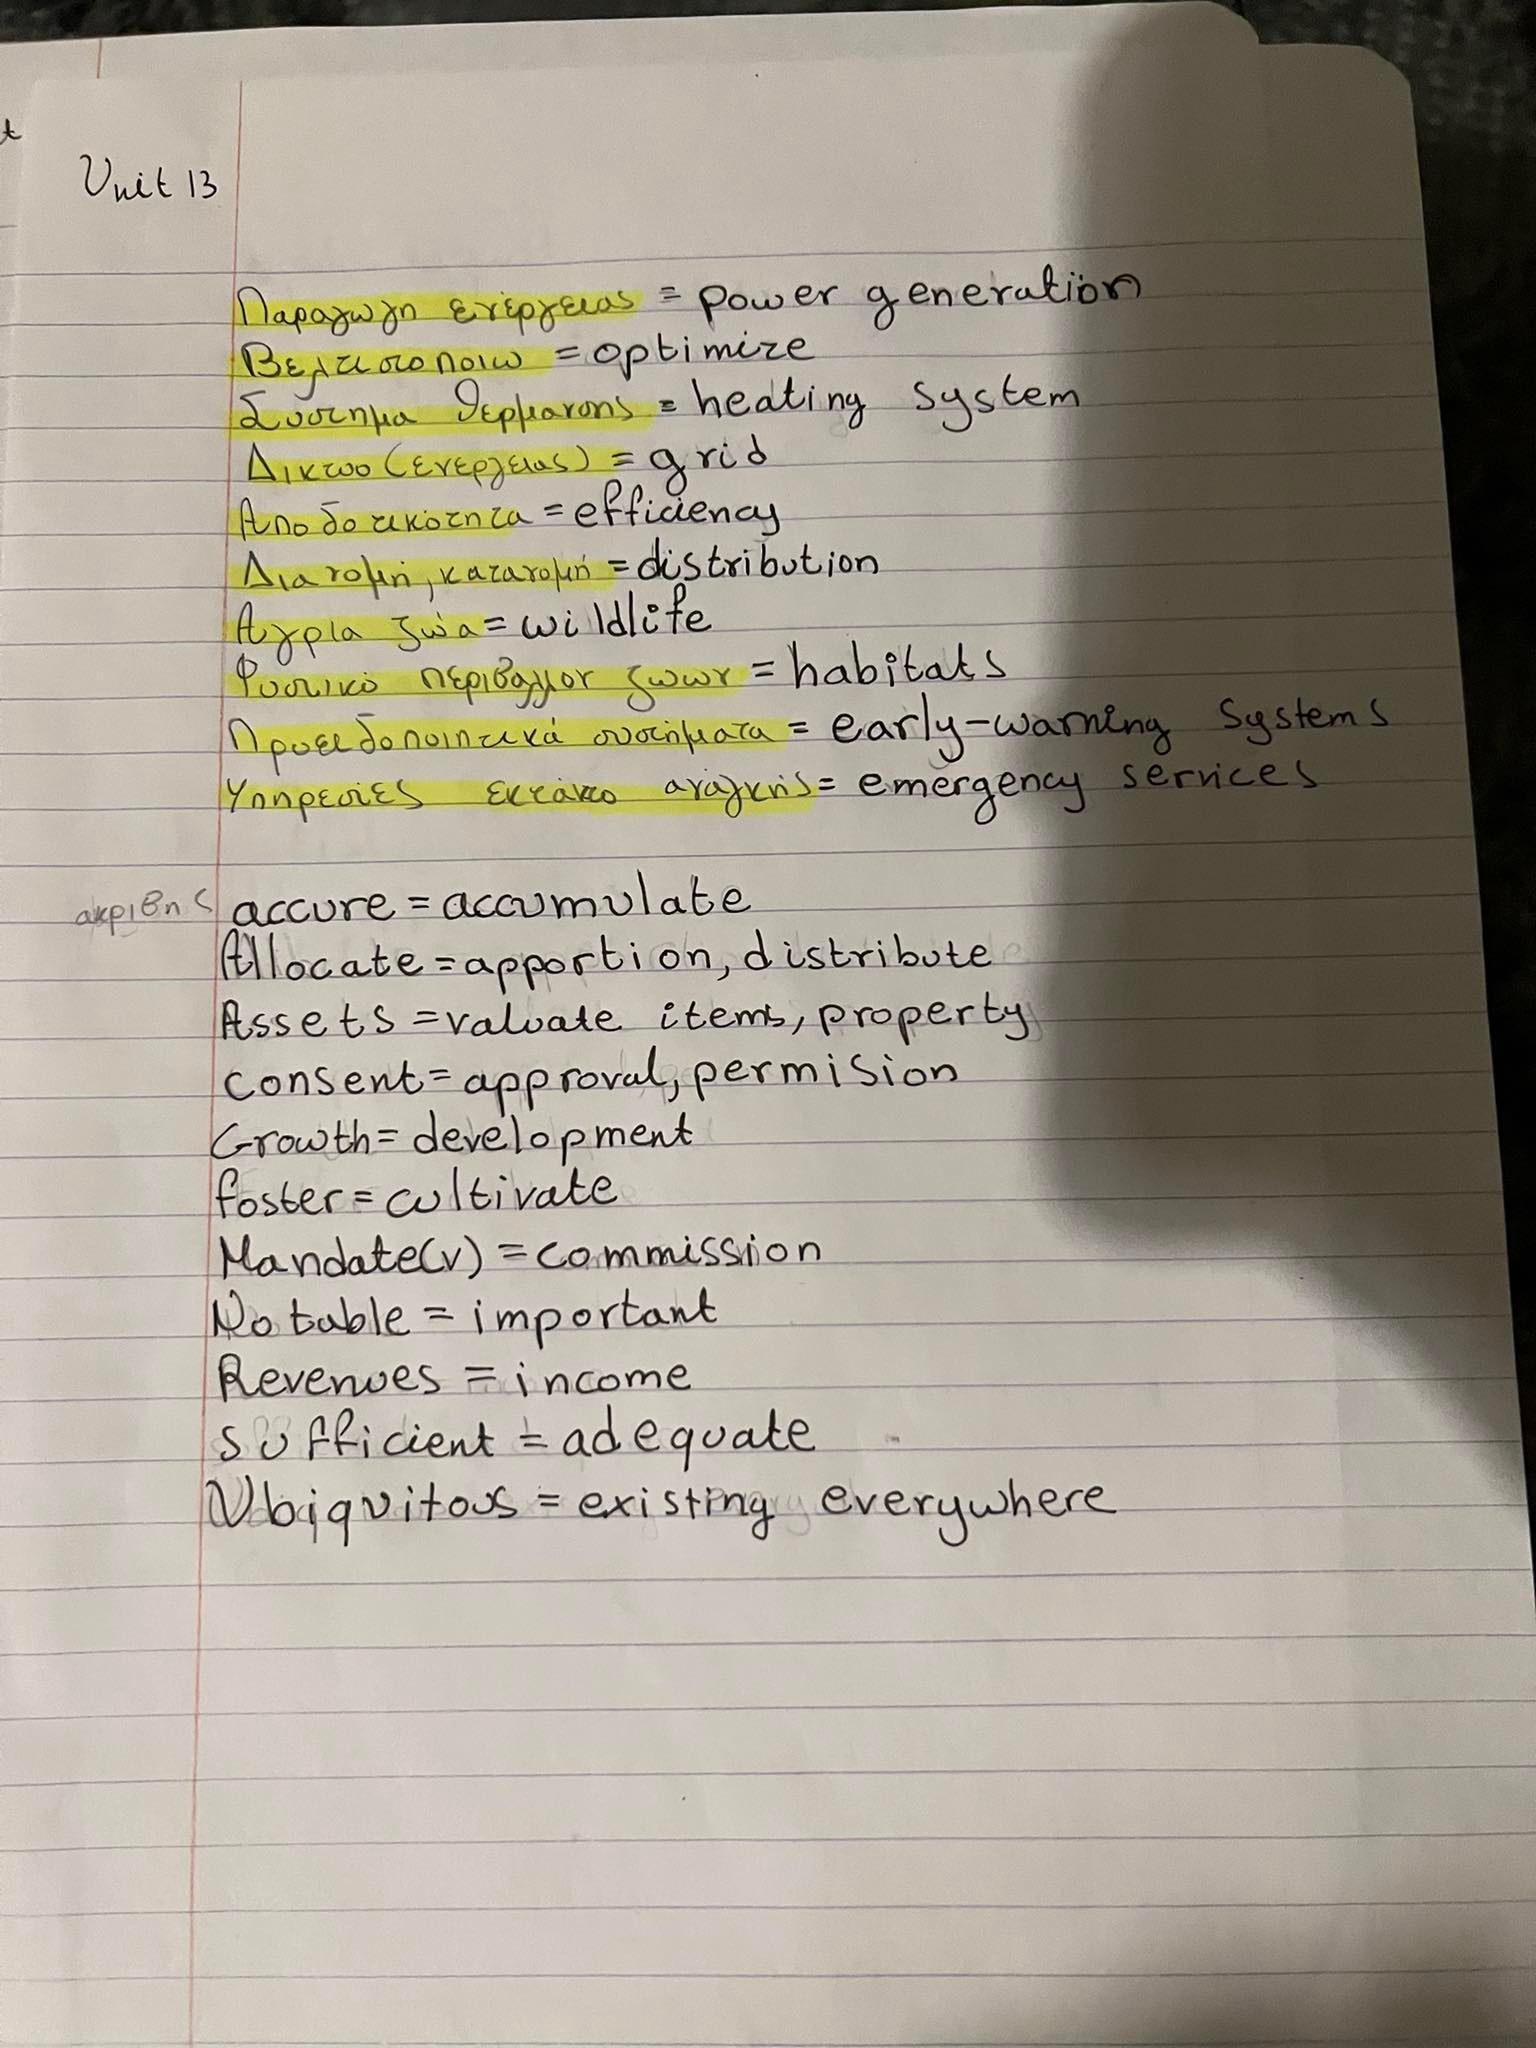 t
Unit 13
Παραγωγη ενέργειας = power generation
Βελτιστοποιω = optimize
Συστημα θερμανσης = heating system
Δικτυο (ενεργειας) = grid
Αποδοτικότητα = efficiency
Διανομή, κατανομή = distribution
Αγρια ζώα = wildlife
Φυσικό περιβαλλον ζωων = habitats
Προειδοποιητικά συστήματα = early-warning systems
Υπηρεσίες εκτάκτο ανάγκής = emergency services
ακριβης accure = accumulate
Allocate = apportion, distribute
Assets = valuate items, property
consent = approval, permision
Growth = development
foster = cultivate
Mandate(v) = commission
Notable = important
Revenues = income
sufficient = adequate
Ubiquitous = existing everywhere